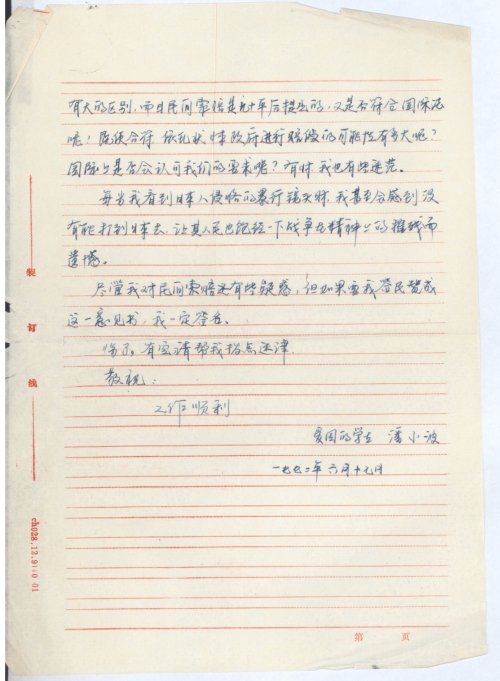 有大的区别,而且民间索赔是几十年后提出的,又是否符合国际法
呢?既使合符 依现状 日本政府进行赔偿的可能性有多大呢?
国际上是否会认可我们的要求呢?有时我也有些迷茫。
每当我看到日本人侵略的暴行镜头时,我甚至会感到没
有能打到日本去,让其人民也经一下战争与精神上的摧残而
遗憾。
尽管我对民间索赔还有些疑惑,但如果要我签民
这一意见书,我一定签名。
有空请帮我指点迷津
敬祝:
工作顺利
爱国的学生 潘小波
一九九二年六月十七日
装
订
线
ch028.12.9110 01
第 页